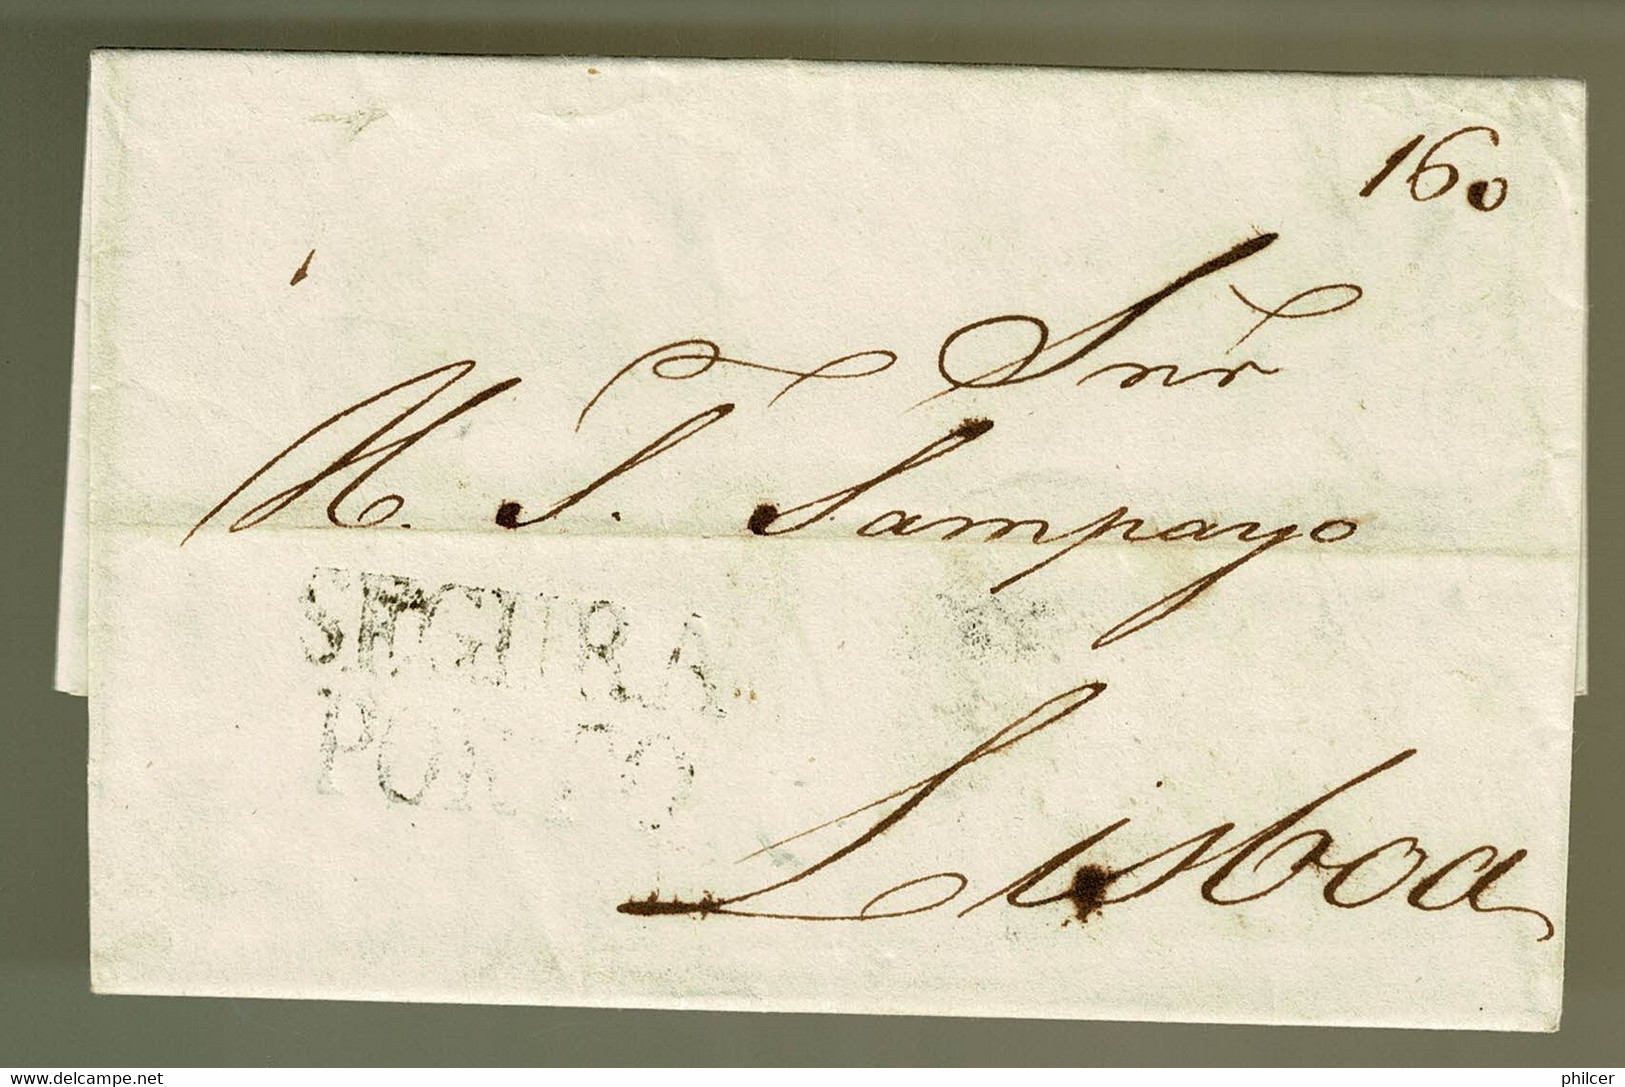 160
Snr
M. J. Sampayo
SEGURA
PORTO
Lisboa
www.delcampe.net
philcer